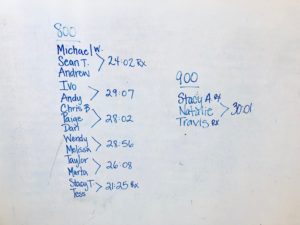 800
Michael W.
Sean T. 24:02 Rx
Andrew
Ivo
Andy 29:07
Chris B
Paige 28:02
Dan
Wendy
Melissa 28:56
Taylor
Marta 26:08
Stacy T
Tess 21:25 Rx
900
Stacy A. Rx
Natalie 30:01
Travis Rx